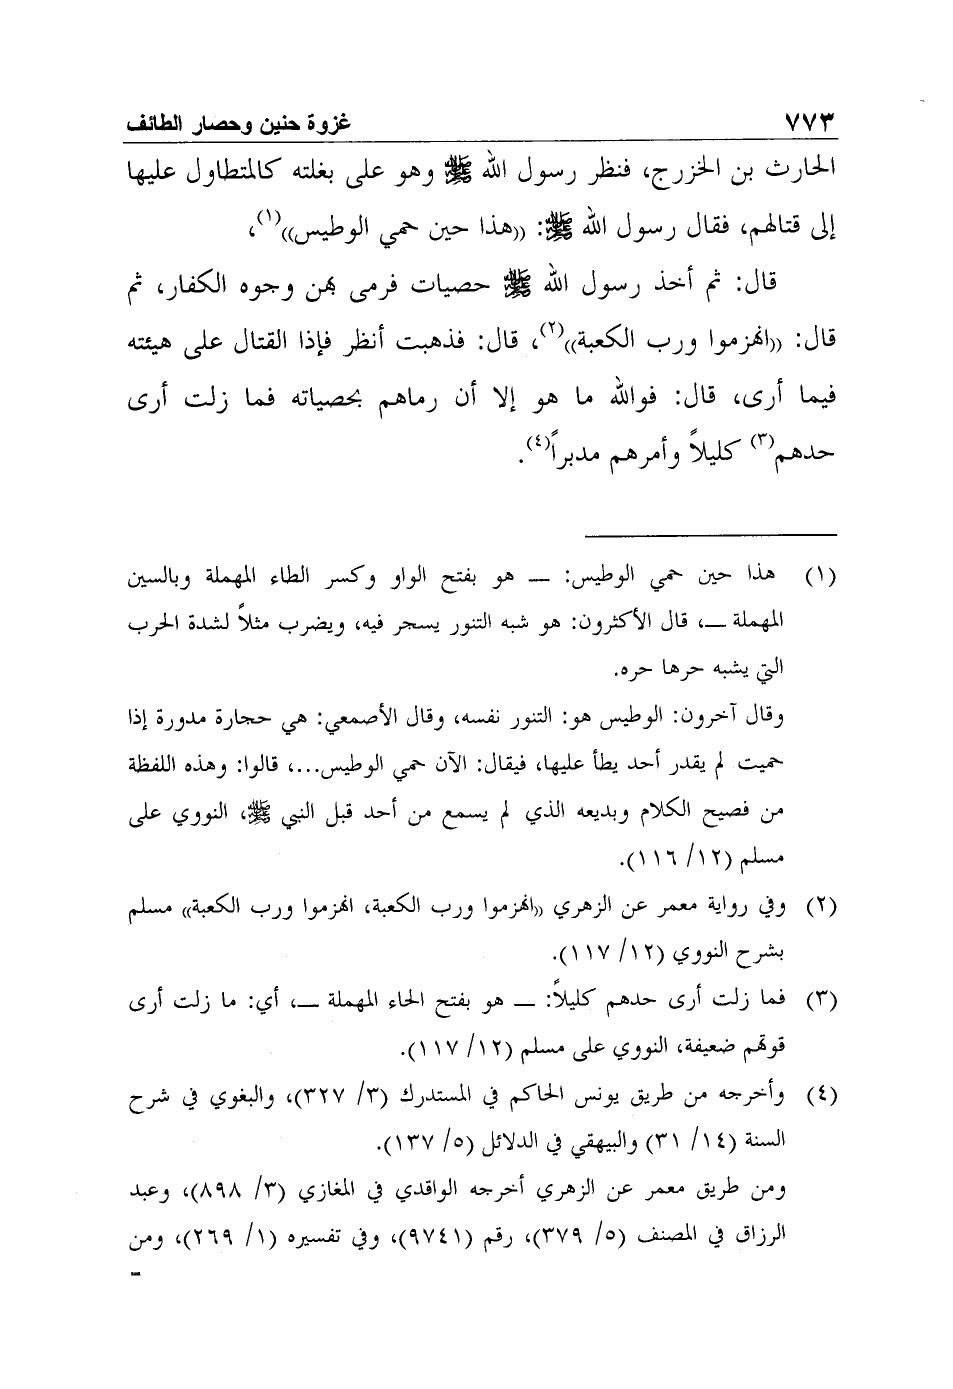 ٧٧٣ غزوة حنين وحصار الطائف
الحارث بن الخزرج، فنظر رسول الله ﷺ وهو على بغلته كالمتطاول عليها
إلى قتالهم، فقال رسول الله ﷺ: ((هذا حين حمي الوطيس))(١)،
قال: ثم أخذ رسول الله ﷺ حصيات فرمى بهن وجوه الكفار، ثم
قال: ((انهزموا ورب الكعبة))(٢)، قال: فذهبت أنظر فإذا القتال على هيئته
فيما أرى، قال: فوالله ما هو إلا أن رماهم بحصياته فما زلت أرى
حدهم(٣) كليلاً وأمرهم مدبراً(٤).
(١) هذا حين حمي الوطيس: ـــ هو بفتح الواو وكسر الطاء المهملة وبالسين
المهملة ـــ، قال الأكثرون: هو شبه التنور يسجر فيه، ويضرب مثلاً لشدة الحرب
التي يشبه حرها حره.
وقال آخرون: الوطيس هو: التنور نفسه، وقال الأصمعي: هي حجارة مدورة إذا
حميت لم يقدر أحد يطأ عليها، فيقال: الآن حمي الوطيس...، قالوا: وهذه اللفظة
من فصيح الكلام وبديعه الذي لم يسمع من أحد قبل النبي ﷺ، النووي على
مسلم (١٢/ ١١٦).
(٢) وفي رواية معمر عن الزهري ((انهزموا ورب الكعبة، انهزموا ورب الكعبة)) مسلم
بشرح النووي (١٢/ ١١٧).
(٣) فما زلت أرى حدهم كليلاً: ـــ هو بفتح الحاء المهملة ـــ، أي: ما زلت أرى
قوتهم ضعيفة، النووي على مسلم (١٢/ ١١٧).
(٤) وأخرجه من طريق يونس الحاكم في المستدرك (٣/ ٣٢٧)، والبغوي في شرح
السنة (١٤/ ٣١) والبيهقي في الدلائل (٥/ ١٣٧).
ومن طريق معمر عن الزهري أخرجه الواقدي في المغازي (٣/ ٨٩٨)، وعبد
الرزاق في المصنف (٥/ ٣٧٩)، رقم (٩٧٤١)، وفي تفسيره (١/ ٢٦٩)، ومن
=